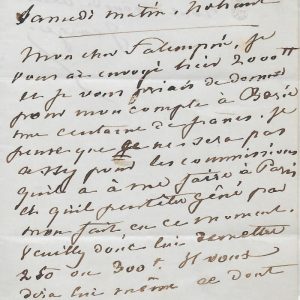 Samedi matin, Nohant
Mon cher Falempin, je
vous ai envoyé hier 2000 tt
et je vous priais de donner
pour mon compte à Bocé
une centaine de francs. Je
pense que ce ne sera pas
assez pour les commissions
qu'il a à me faire à Paris
et qu'il peut être gêné par
mon fait, en ce moment.
Veuillez donc lui remettre
250 ou 300 tt. Il vous
dira lui même ce dont